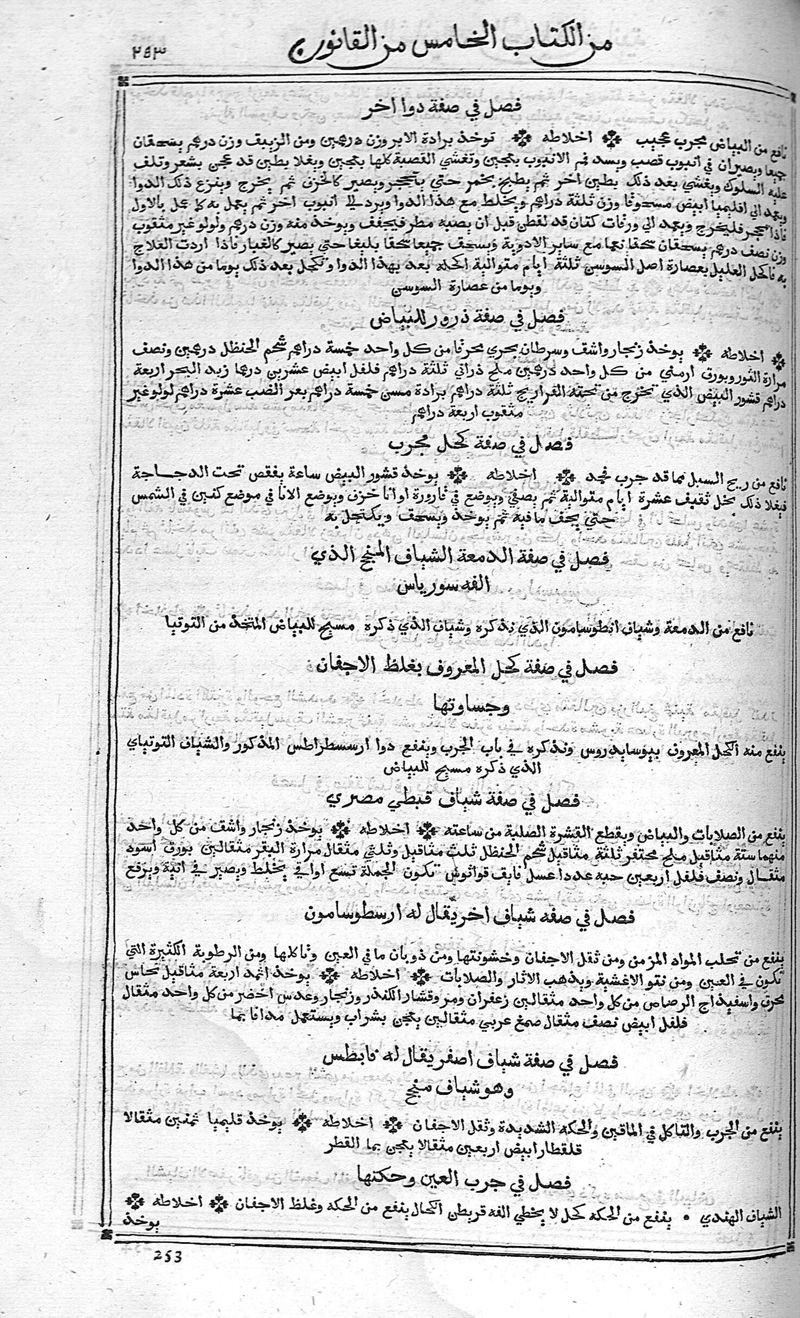 من الكتاب الخامس من القانون
٢٥٣
فصل في صفة دوا اخر
نافع من البياض مجرب عجيب اخلاطه توخذ برادة الابر وزن درهمين ومن الزيبق وزن درهم يسحقان
جميعا ويصيران في انبوب قصب ويسد فم الانبوب بعجين وتغشي القصبة كلها بعجين ويغلا بطين قد عجن بشعر وتلف
عليه السلوك ويغشي بعد ذلك بطين اخر ثم يطبخ بخمر حتي يتحجر ويصير كالخزف ثم يخرج وينزع ذلك الدوا
ويعمد الي اقليميا ابيض مسحوقا وزن ثلثة دراهم ويخلط مع هذا الدوا ويرد الي انبوب اخر ثم يعمل به كما عمل بالاول
فاذا تحجر فليخرج ويعمد الي ورقات كتان قد لقطن قبل ان يصبه مطر فيجفف ويوخذ منه وزن درهم ولولو غير مثقوب
وزن نصف درهم يسحقان سحقا نعما مع ساير الادوية ويسحق جميعا سحقا بليغا حتي يصير كالغبار فاذا اردت العلاج
به فاكحل العليل بعصارة اصل السوسن ثلثة ايام متوالية اكحله بعد بهذا الدوا وتكحل بعد ذلك يوما من هذا الدوا
ويوما من عصارة السوسن
فصل في صفة ذرور للبياض
اخلاطه يوخذ زنجار واشف وسرطان بحري محرقا من كل واحد خمسة دراهم شحم الحنظل درهمين ونصف
مرارة الثور وبورق ارمني من كل واحد درهمين ملح ذراني ثلثة دراهم فلفل ابيض عشرين درهما زبد البحر اربعة
دراهم قشور البيض الذي تخرج من تحته الفراريج ثلثة دراهم برادة مسن خمسة دراهم بعر الضب عشرة دراهم لولو غير
مثقوب اربعة دراهم
فصل في صفة كحل مجرب
نافع من ريح السبل مما قد جرب فحمد اخلاطه يوخذ قشور البيض ساعة يفقص تحت الدجاجة
فيغلا ذلك بخل ثقيف عشرة ايام متوالية ثم يصفي ويوضع في قارورة او انا خزف ويوضع الانا في موضع كنين في الشمس
حتي يجف ما فيه ثم يوخذ ويسحق ويكتحل به
فصل في صفة الدمعة الشياف المنجح الذي
الفه سورياس
نافع من الدمعة وشياف انطوسامون الذي نذكره وشياف الذي ذكره مسيح للبياض المتخذ من التوتيا
فصل في صفة كحل المعروف بغلظ الاجفان
وجساوتها
ينفع منه الكحل المعروف بيوسايدروس ونذكره في باب الجرب وينفع دوا ارسسطراطس المذكور والشياف التوتياي
الذي ذكره مسيح للبياض
فصل في صفة شياف قبطي مصري
ينفع من الصلابات والبياض ويقطع القشرة الصلبة من ساعته اخلاطه يوخذ زنجار واشف من كل واحد
منهما ستة مثاقيل ملح محتفر ثلثة مثاقيل شحم الحنظل ثلث مثاقيل وثلثي مثقال مرارة البقر مثقالين بورق اسود
مثقال ونصف فلفل اربعين حبه عددا عسل فايق قواثوش تكون الجملة تسع اواقي يخلط ويصير في انية ويرفع
فصل في صفه شياف اخر يقال له ارسطوسامون
ينفع من تحلب المواد المزمن ومن ثقل الاجفان وخشونتها ومن ذوبان ما في العين وتاكلها ومن الرطوبة الكثيرة التي
تكون في العين ومن نتو الاغشية ويذهب الاثار والصلابات اخلاطه يوخذ اثمد اربعة مثاقيل نحاس
محرق واسفيذاج الرصاص من كل واحد مثقالين زعفران ومر وقشار الكندر وزنجار وعدس اخضر من كل واحد مثقال
فلفل ابيض نصف مثقال صمغ عربي مثقالين يعجن بشراب ويستعمل مدافا بما
فصل في صفة شياف اصفر يقال له نابطس
وهو شياف منجح
ينفع من الجرب والتاكل في الماقين والحكة الشديدة وثقل الاجفان اخلاطه يوخذ قليميا ثمنين مثقالا
قلقطار ابيض اربعين مثقالا يعجن بما القطر
فصل في جرب العين وحكتها
الشياف الهندي ينفع من الحكة كحل لا يخطي الفه قريطن الكحال ينفع من الحكة وغلظ الاجفان اخلاطه
يوخذ
253